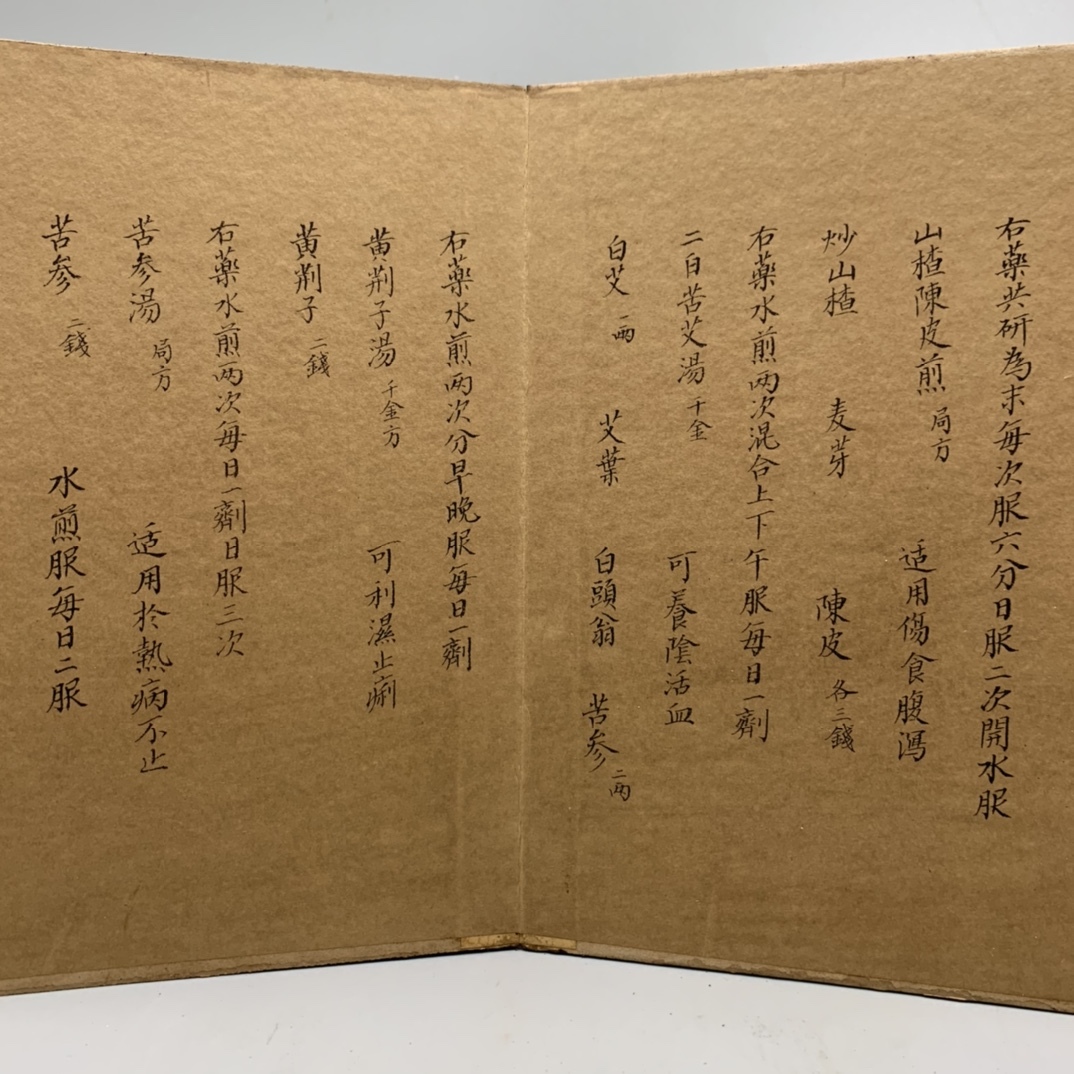 右藥共研為末每次服六分日服二次開水服
山楂陳皮煎 局方 适用傷食腹瀉
炒山楂 麦芽 陳皮 各三錢
右藥水煎两次混合上下午服每日一劑
二白苦艾湯 千金 可養陰活血
白艾 一两 艾葉 白頭翁 苦参 二两
右藥水煎两次分早晚服每日一劑
黄荆子湯 千金方 可利濕止痢
黄荆子 二錢
右藥水煎两次每日一劑日服三次
苦参湯 局方 适用於熱病不止
苦参 二錢 水煎服每日二服